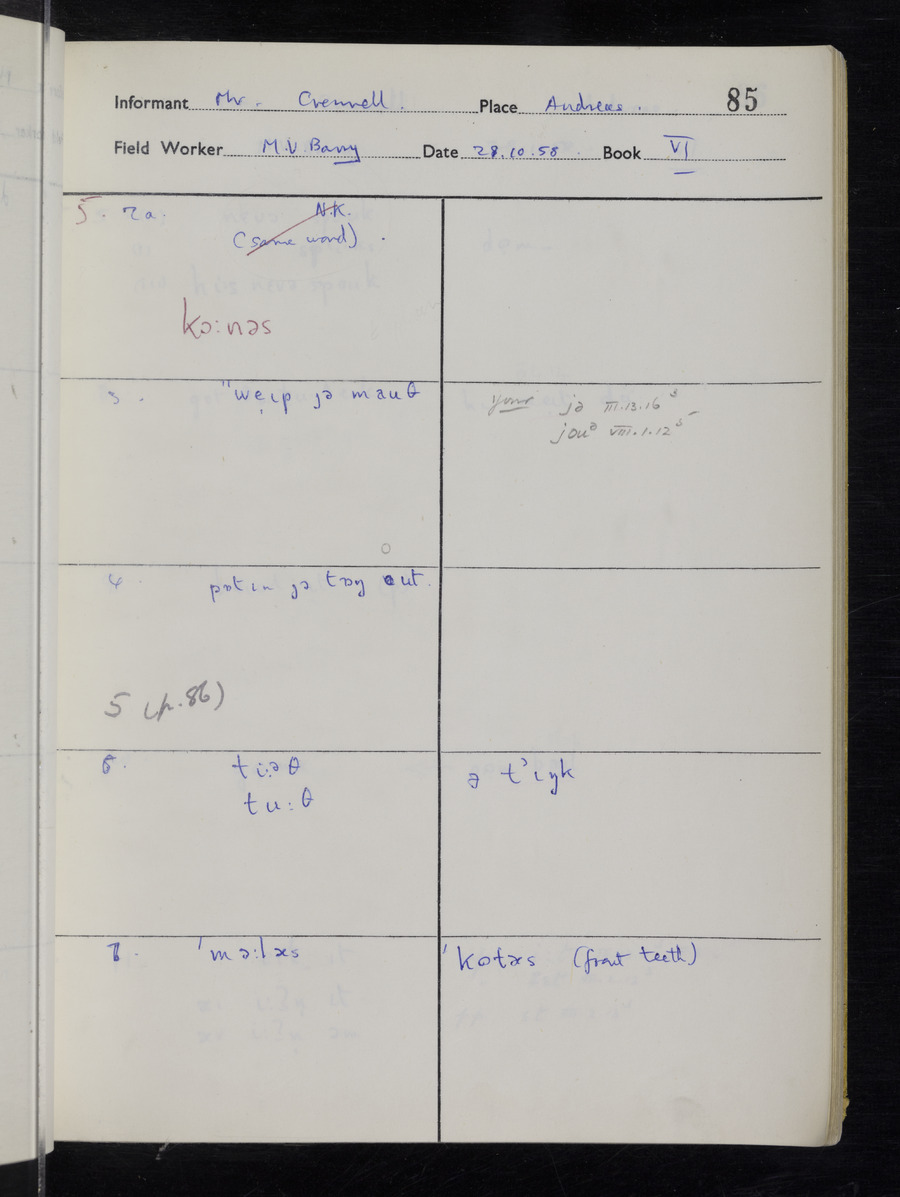 Informant Mr. Crennell. Place Andreas. 85
Field Worker M.V. Barry Date 28.10.58. Book VI
5. 2a. N.K.
(same word).
kɔ:nəs
3. "weɩp jə mauθ
your jə III.13.16⁵
jouᵊ VIII.1.12⁵
4. pɷt ɩn jə tɷŋ out.
5 (p.86)
6. ti:əθ
tu:θ
ə t'ɩŋk
7. 'mə:lɚs
'kotɚs (front teeth)